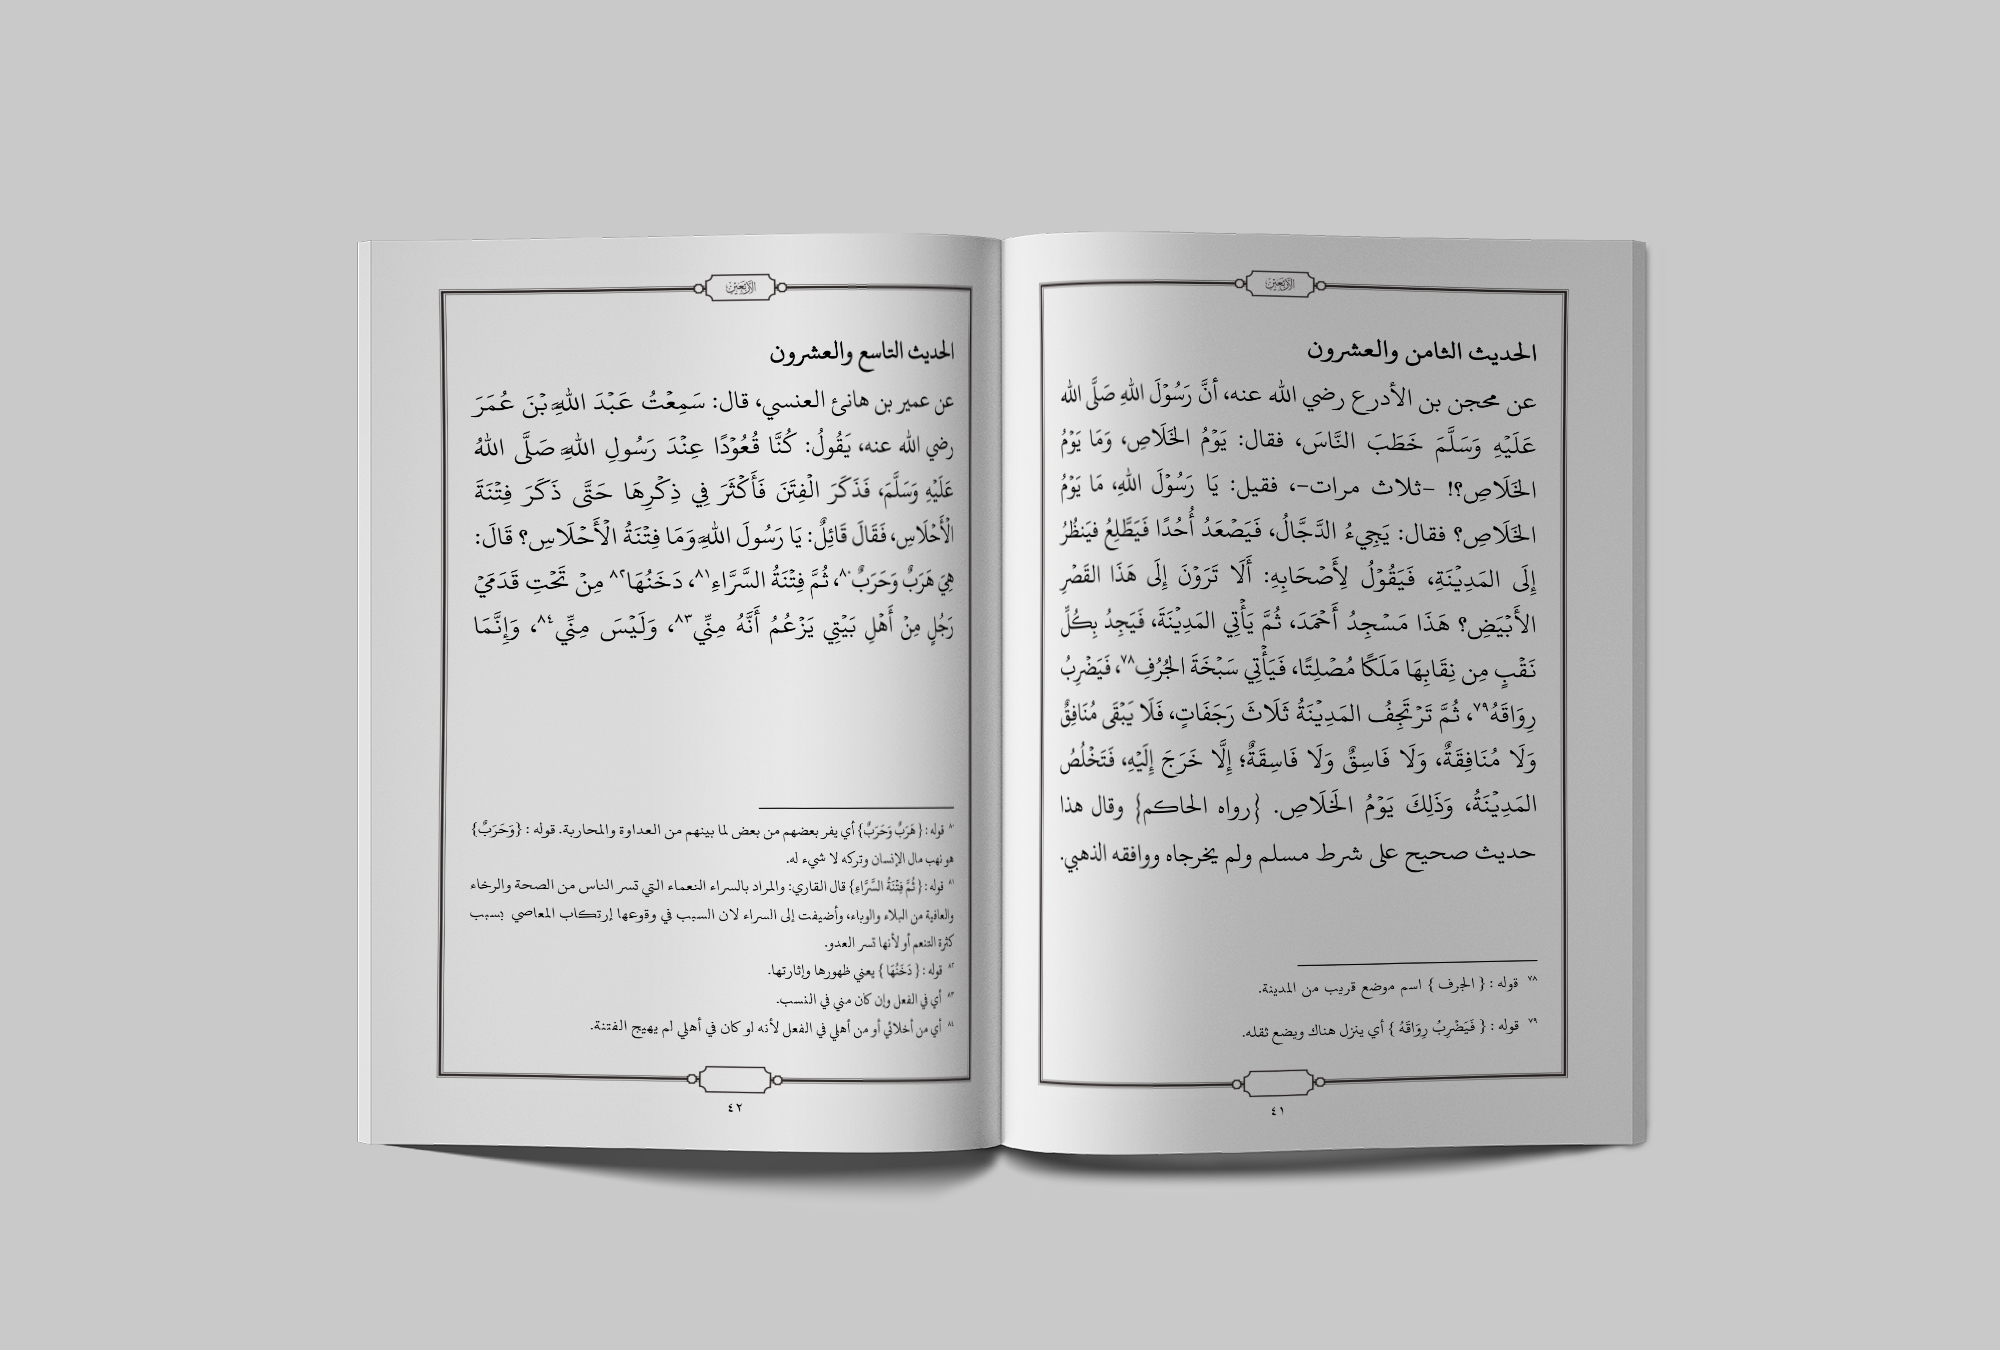 الأربعين
الحديث الثامن والعشرون
عن محجن بن الأدرع رضي الله عنه، أنَّ رَسُوْلَ اللهِ صَلَّى الله
عَلَيْهِ وَسَلَّمَ خَطَبَ النَّاسَ، فقال: يَوْمُ الخَلَاصِ، وَمَا يَوْمُ
الخَلَاصِ؟! –ثلاث مرات–، فقيل: يَا رَسُوْلَ اللهِ، مَا يَوْمُ
الخَلَاصِ؟ فقال: يَجِيءُ الدَّجَّالُ، فَيَصْعَدُ أُحُدًا فَيَطَّلِعُ فيَنظُرُ
إِلَى المَدِيْنَةِ، فَيَقُوْلُ لِأَصْحَابِهِ: أَلَا تَرَوْنَ إِلَى هَذَا القَصْرِ
الأَبْيَضِ؟ هَذَا مَسْجِدُ أَحْمَدَ، ثُمَّ يَأْتِي المَدِيْنَةَ، فَيَجِدُ بِكُلِّ
نَقْبٍ مِن نِقَابِهَا مَلَكًا مُصْلِتًا، فَيَأْتِي سَبْخَةَ الجُرُفِ٧٨، فَيَضْرِبُ
رِوَاقَهُ٧٩، ثُمَّ تَرْتَجِفُ المَدِيْنَةُ ثَلَاثَ رَجَفَاتٍ، فَلَا يَبْقَى مُنَافِقٌ
وَلَا مُنَافِقَةٌ، وَلَا فَاسِقٌ وَلَا فَاسِقَةٌ؛ إِلَّا خَرَجَ إِلَيْهِ، فَتَخْلُصُ
المَدِيْنَةُ، وَذَلِكَ يَوْمُ الخَلَاصِ. {رواه الحاكم} وقال هذا
حديث صحيح على شرط مسلم ولم يخرجاه ووافقه الذهبي.
٧٨ قوله : { الجرف } اسم موضع قريب من المدينة.
٧٩ قوله : { فَيَضْرِبُ رِوَاقَهُ } أي ينزل هناك ويضع ثقله.
٤١
الأربعين
الحديث التاسع والعشرون
عن عمير بن هانئ العنسي، قال: سَمِعْتُ عَبْدَ اللهِ بْنَ عُمَرَ
رضي الله عنه، يَقُولُ: كُنَّا قُعُوْدًا عِنْدَ رَسُولِ اللهِ صَلَّى اللهُ
عَلَيْهِ وَسَلَّمَ، فَذَكَرَ الْفِتَنَ فَأَكْثَرَ فِي ذِكْرِهَا حَتَّى ذَكَرَ فِتْنَةَ
الْأَحْلَاسِ، فَقَالَ قَائِلٌ: يَا رَسُولَ اللهِ وَمَا فِتْنَةُ الْأَحْلَاسِ؟ قَالَ:
هِيَ هَرَبٌ وَحَرَبٌ٨٠، ثُمَّ فِتْنَةُ السَّرَّاءِ٨١، دَخَنُهَا٨٢ مِنْ تَحْتِ قَدَمَيْ
رَجُلٍ مِنْ أَهْلِ بَيْتِي يَزْعُمُ أَنَّهُ مِنِّي٨٣، وَلَيْسَ مِنِّي٨٤، وَإِنَّمَا
٨٠ قوله : { هَرَبٌ وَحَرَبٌ} أي يفر بعضهم من بعض لما بينهم من العداوة والمحاربة. قوله : {وَحَرَبٌ}
هو نهب مال الإنسان وتركه لا شيء له.
٨١ قوله : { ثُمَّ فِتْنَةُ السَّرَّاءِ} قال القاري: والمراد بالسراء النعماء التي تسر الناس من الصحة والرخاء
والعافية من البلاء والوباء، وأضيفت إلى السراء لان السبب في وقوعها إرتكاب المعاصي بسبب
كثرة التنعم أو لأنها تسر العدو.
٨٢ قوله : { دَخَنُهَا } يعني ظهورها وإثارتها.
٨٣ أي في الفعل وإن كان مني في النسب.
٨٤ أي من أخلائي أو من أهلي في الفعل لأنه لو كان في أهلي لم يهيج الفتنة.
٤٢